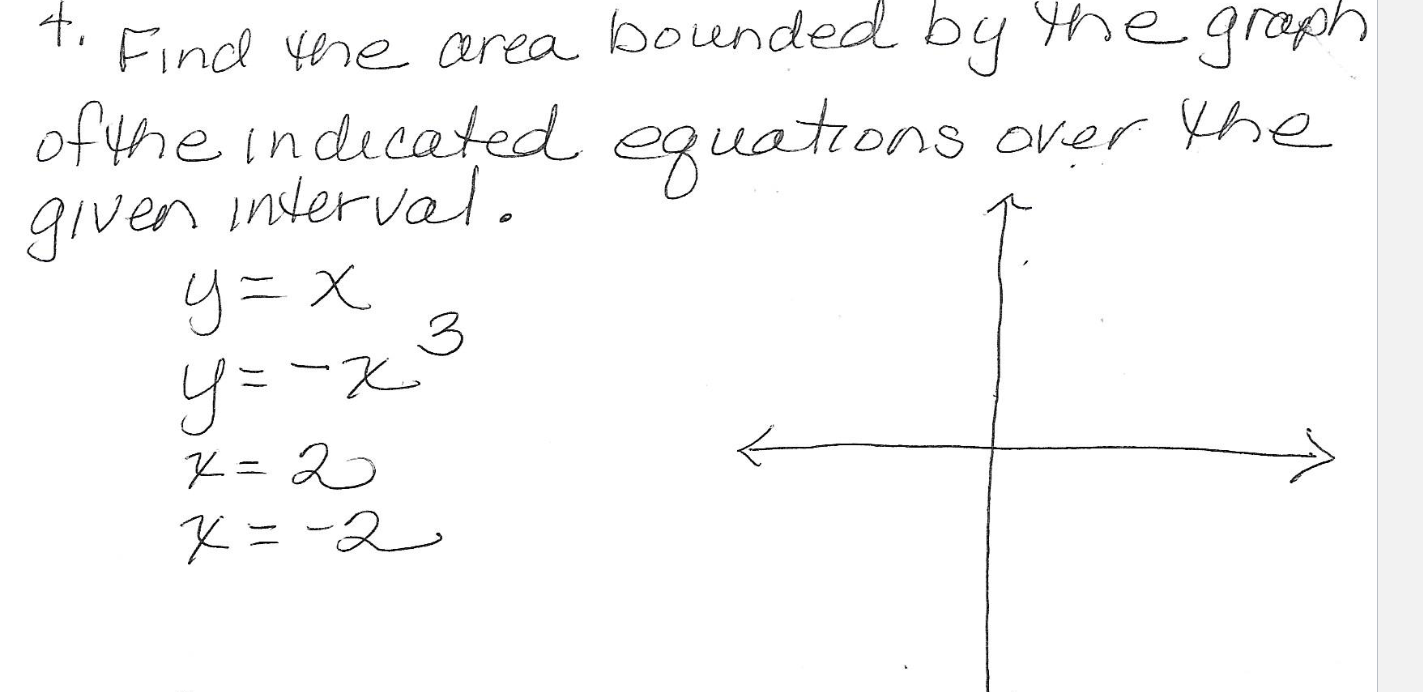 4. Find the area bounded by the graph
of the indicated equations over the
given interval.
y = x
y = -x³
x = 2
x = -2